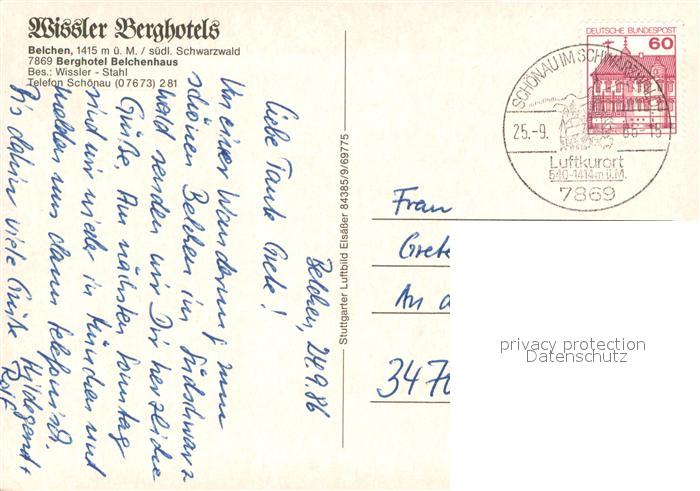 Wissler Berghotels
Belchen, 1415 m ü. M. / südl. Schwarzwald
7869 Berghotel Belchenhaus
Bes.: Wissler - Stahl
Telefon Schönau (07673) 281
Belchen, 24.9.86
Liebe Tante Grete!
Von einer Wanderung zum
schönen Belchen im Südschwarz-
wald senden wir Dir herzliche
Grüße. Am nächsten Sonntag
sind wir wieder in München und
melden uns dann telefonisch.
Bis dahin viele Grüße Hildegard +
Rolf
Stuttgarter Luftbild Elsäßer 84385/9/69775
DEUTSCHE BUNDESPOST
60
SCHÖNAU IM SCHWARZWALD
25.-9.
Luftkurort
540-1414m ü.M.
7869
Frau
Grete
An d
3470
privacy protection
Datenschutz